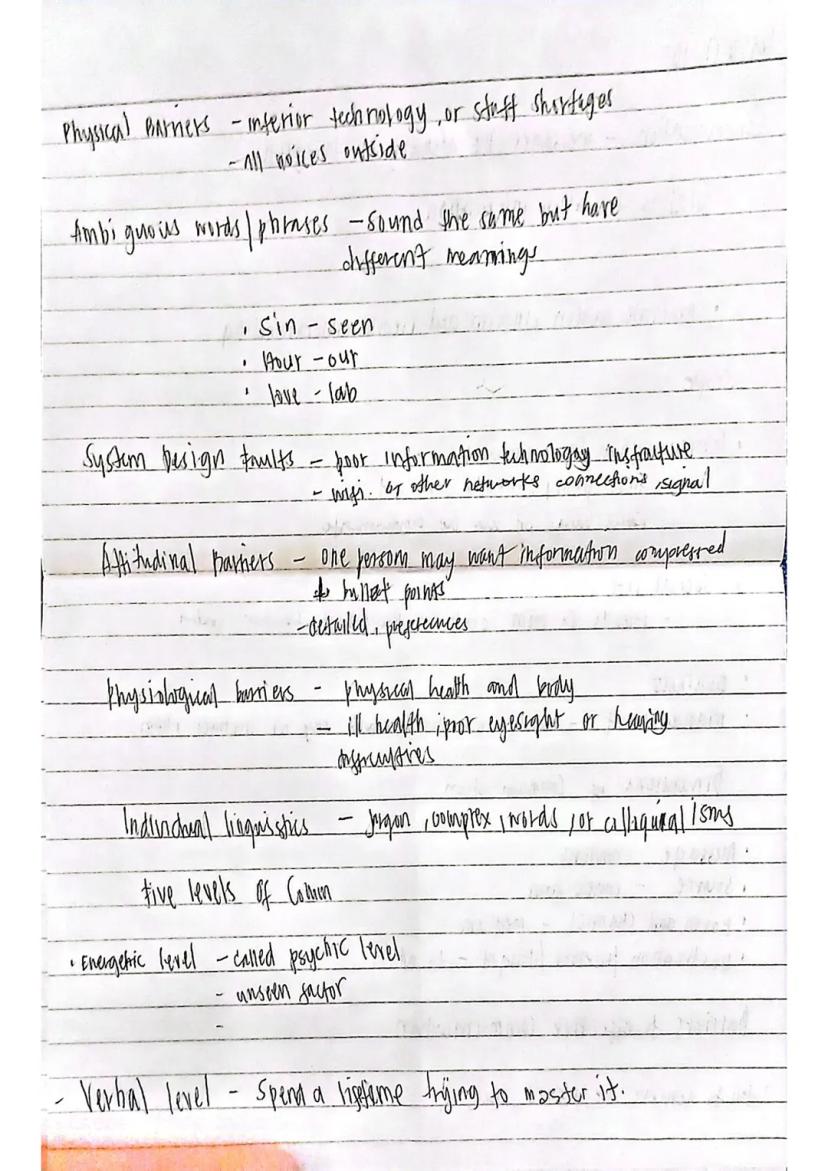 Physical Barriers - inferior technology, or staff shortages
- All noices outside
Ambiguous words/phrases - Sound the same but have
different meanings
• Sin - seen
• Hour - our
• love - lab
System Design faults - poor information technologay
- wifi. or other networks, connections, signal
Attitudinal Barriers - one person may want information compressed
bullet points
- detailed, preferences
Physiological barriers - physical health and body
- ill health, poor eyesight or hearing
Individual linguistics - jargon, complex, words, or
five levels of Common
• Energetic level - called psychic level
- unseen factor
-
- Verbal level - Spend a lifetime trying to master it.